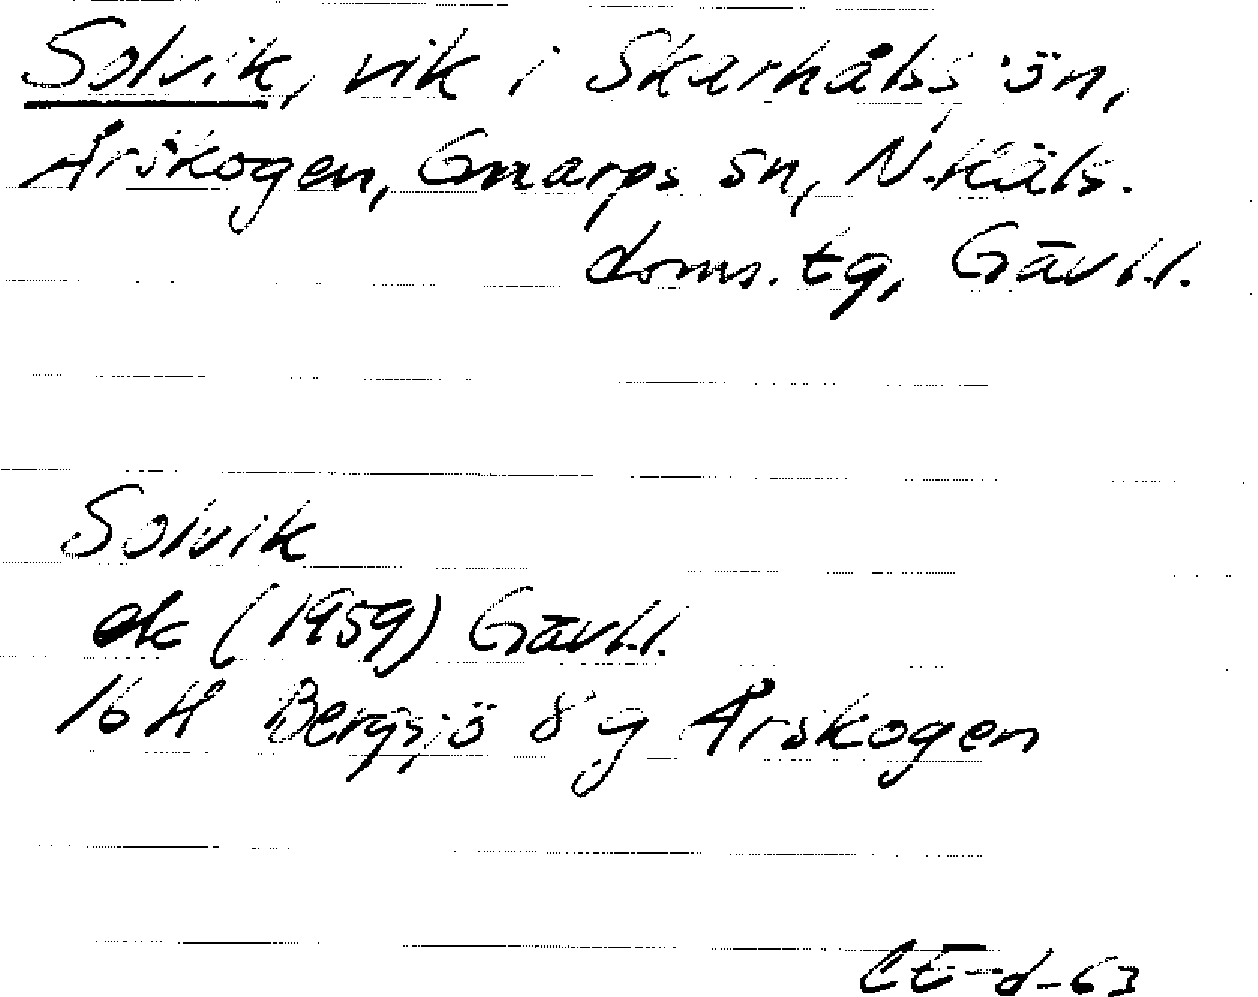 Solvik, vik i Skarhålssjön,
Årskogen, Gnarps sn, N. Häls.
doms. tg, Gävl.l.
Solvik
ek (1959) Gävl.l.
16 H Bergsjö 8 g Årskogen
CE-d-63